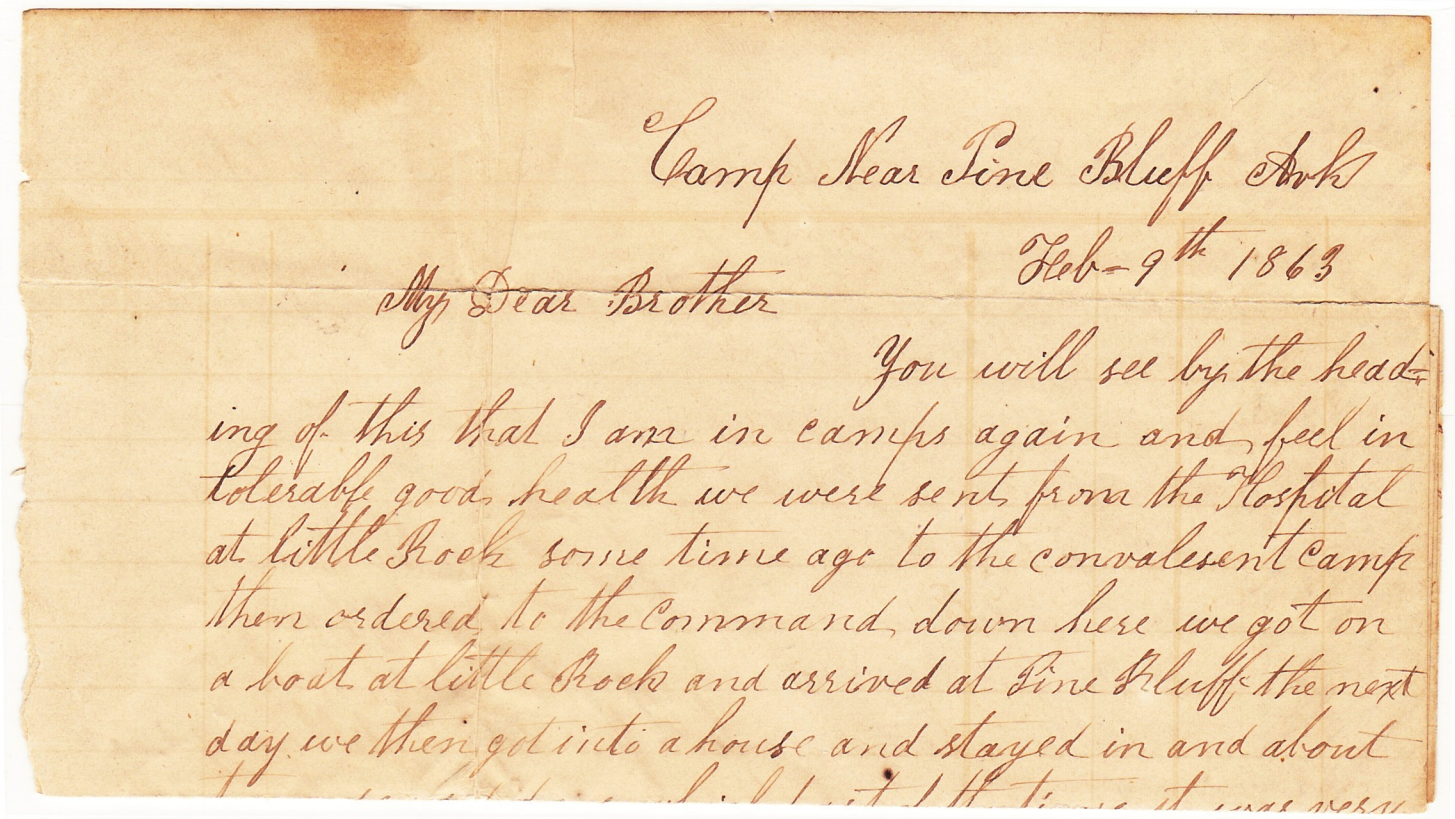 Camp Near Pine Bluff Ark
Feb- 9th 1863
My Dear Brother
You will see by the head=
ing of this that I am in camps again and feel in
tolerable good health we were sent from the Hospital
at little Rock some time ago to the convalesent camp
then ordered to the command down here we got on
a boat at little Rock and arrived at Pine Bluff the next
day we then got into a house and stayed in and about
it was very